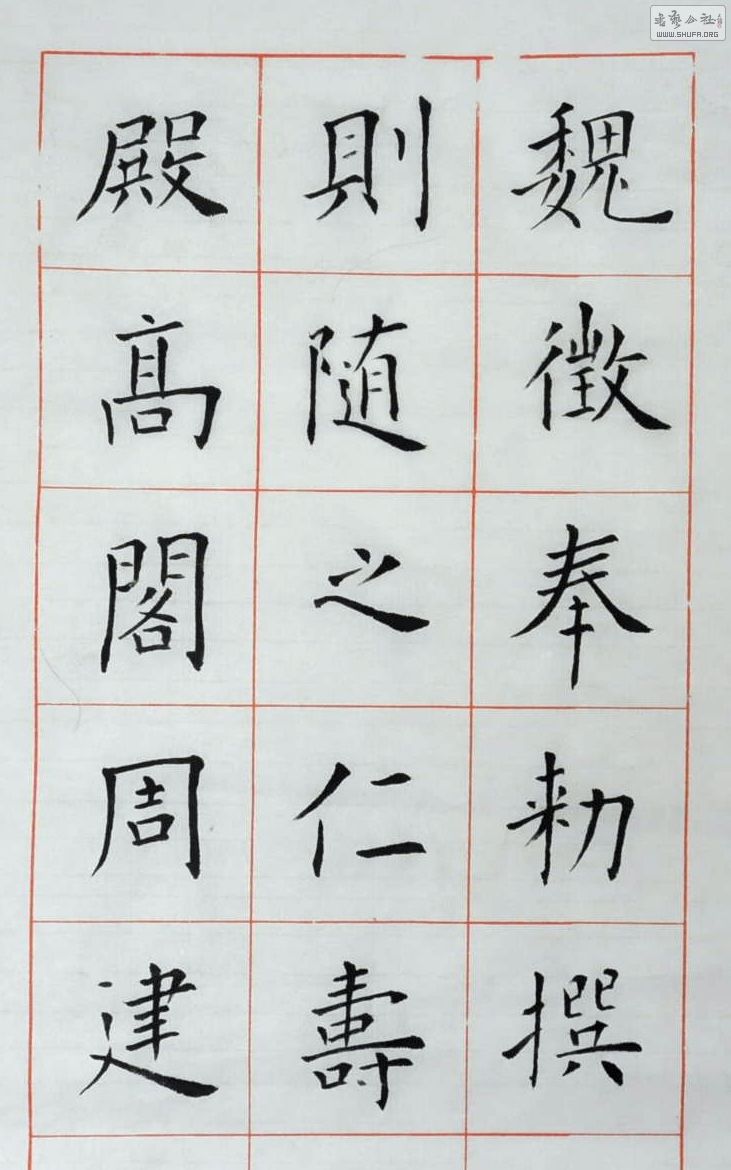 魏徵奉勑撰
則随之仁壽
殿高閣周建
书艺公社
WWW.SHUFA.ORG